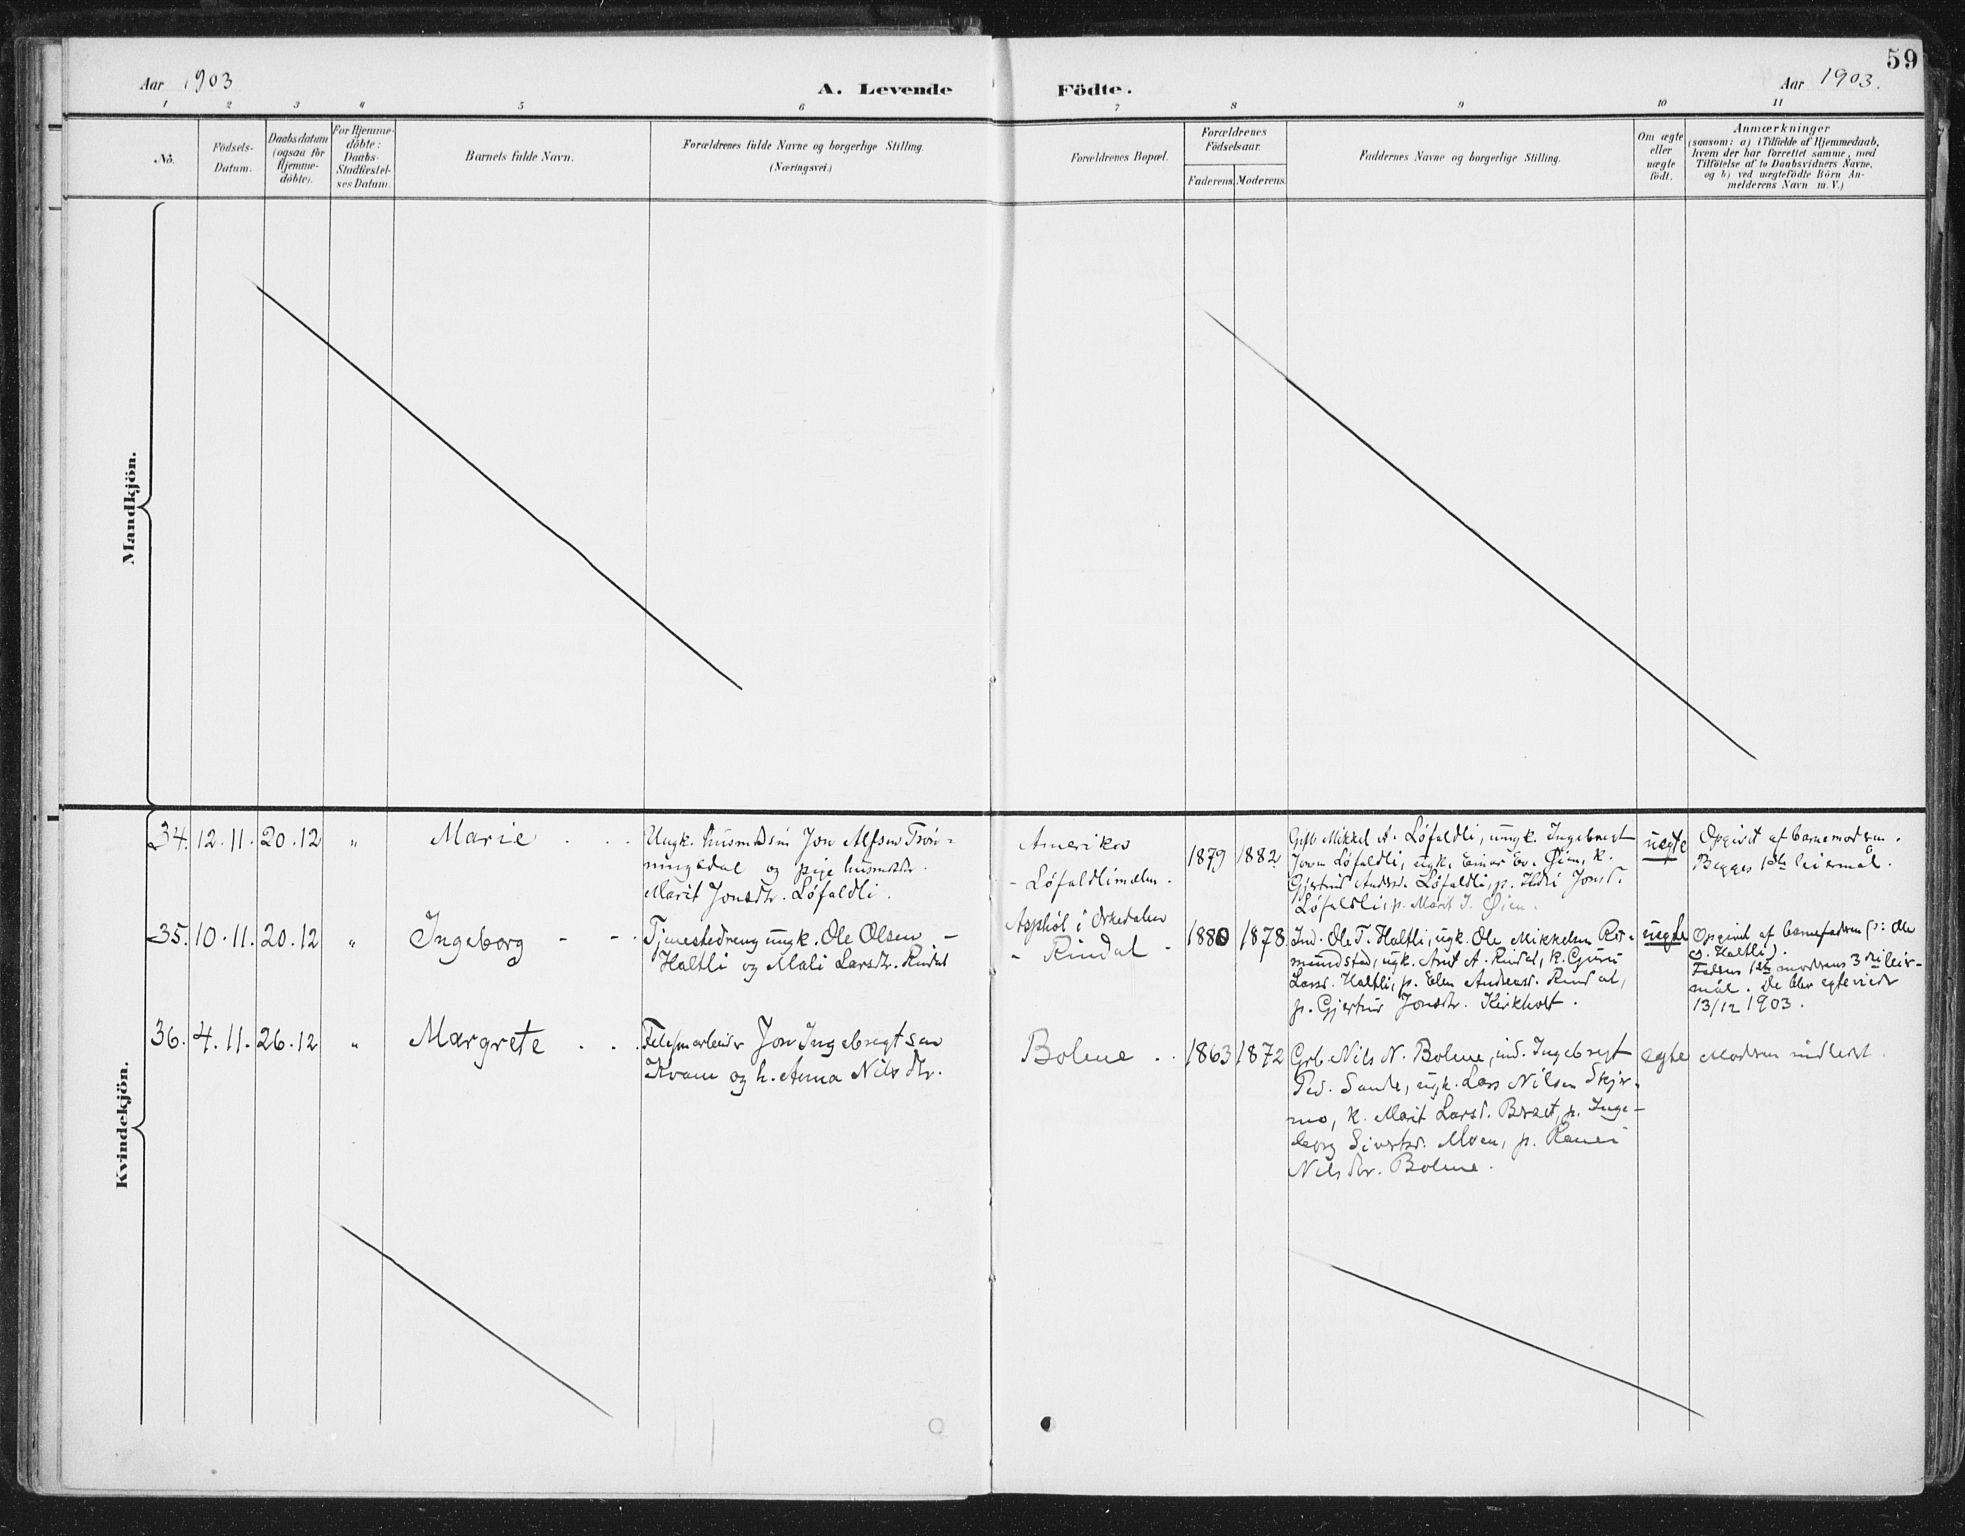 59
Aar 1903
A. Levende Födte.
Aar 1903.
1 2 3 4 5 6 7 8 9 10 11
No.
Födsels-
Datum.
Daabsdatum
(ogsaa for
Hjemme-
döbte).
For Hjemme-
döbte:
Daabs-
Stadfæstel-
ses Datum.
Barnets fulde Navn.
Forældrenes fulde Navne og borgerlige Stilling.
(Næringsvei.)
Forældrenes Bopæl.
Forældrenes
Födselsaar.
Faderens. Moderens.
Faddernes Navne og borgerlige Stilling.
Om ægte
eller
uægte
födt.
Anmærkninger
(saasom: a) i Tilfælde af Hjemmedaab,
hvem der har forrettet samme, med
Tilföielse af to Daabsvidners Navne,
og b) ved uægtefödte Börn An-
melderens Navn m. V.)
Mandkjön.
Kvindekjön.
34. 12.11. 20.12 " Marie
Ungk. husmdssøn Jon Alfsen Trøn-
ningsdal og pige husmdsdtr.
Marit Jonsdtr. Löfaldli.
Amerika
- Löfaldli
1879 1882
Gift Mikkel A. Löfaldli, ungk. Ingebregt
Joren Löfaldli, ugk. Einar Ev. Öien, k.
Gjertrud Andersd. Löfaldli, p. Jonsd.
Löfaldli, p. Marit J. Öien.
uægte
Opgivet af barnemodren.
Begges 1ste leiermål.
35. 10.11. 20.12 " Ingeborg
Tjenestedreng ungk. Ole Olsen
Haltli og Mali Larsdtr. Rindal
Asphöl i Orkedalen
- Rindal -
1880 1878
Ind. Ole T. Haltli, ugk. Ole Mikkelsen Ros-
mundstad, ugk. Arnt A. Rindal, k. Guru
Larsd. Haltli, p. Elen Andersd. Rindal,
p. Gjertrud Jonsdtr. Kirkholt.
uegte
Opgivet af barnefadren (: Ole
O. Haltli).
Fadrens 1ste modrens 3die leir-
mål. De blev egteviede
13/12 1903.
36. 4.11. 26.12 " Margrete
Jon Ingebregtsen
Kvam og h. Anna Nilsdtr.
Bolme
1863 1872
Grb. Nils N. Bolme, ind. Ingebregt
Ped. Sande, ugk. Lars Nilsen Skjer-
mo, k. Marit Larsd. Bræt, p. Inge-
borg Sivertsd. Moen, p.
Nilsdtr. Bolme.
egte
Modren indledet.